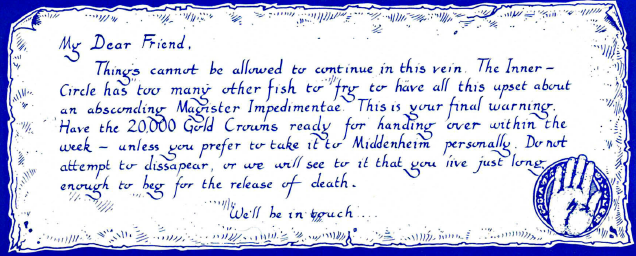 My Dear Friend,
Things cannot be allowed to continue in this vein. The Inner-
Circle has too many other fish to fry to have all this upset about
an absconding Magister Impedimentae. This is your final warning.
Have the 20,000 Gold Crowns ready for handing over within the
week - unless you prefer to take it to Middenheim personally. Do not
attempt to dissapear, or we will see to it that you live just long
enough to beg for the release of death.
We'll be in touch...